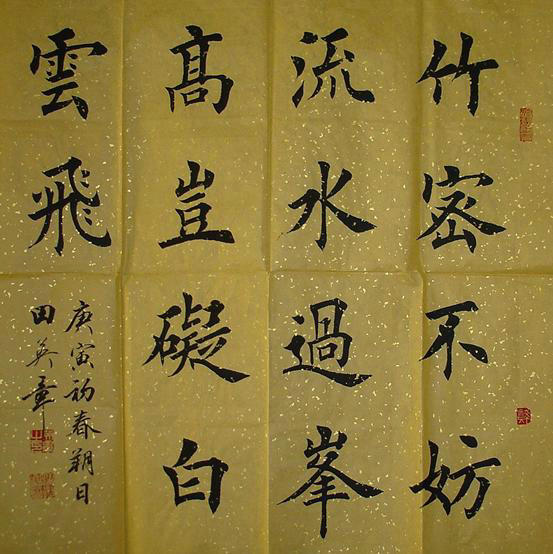 竹密不妨
流水過峯
高豈礙白
雲飛
庚寅初春朔日
田英章